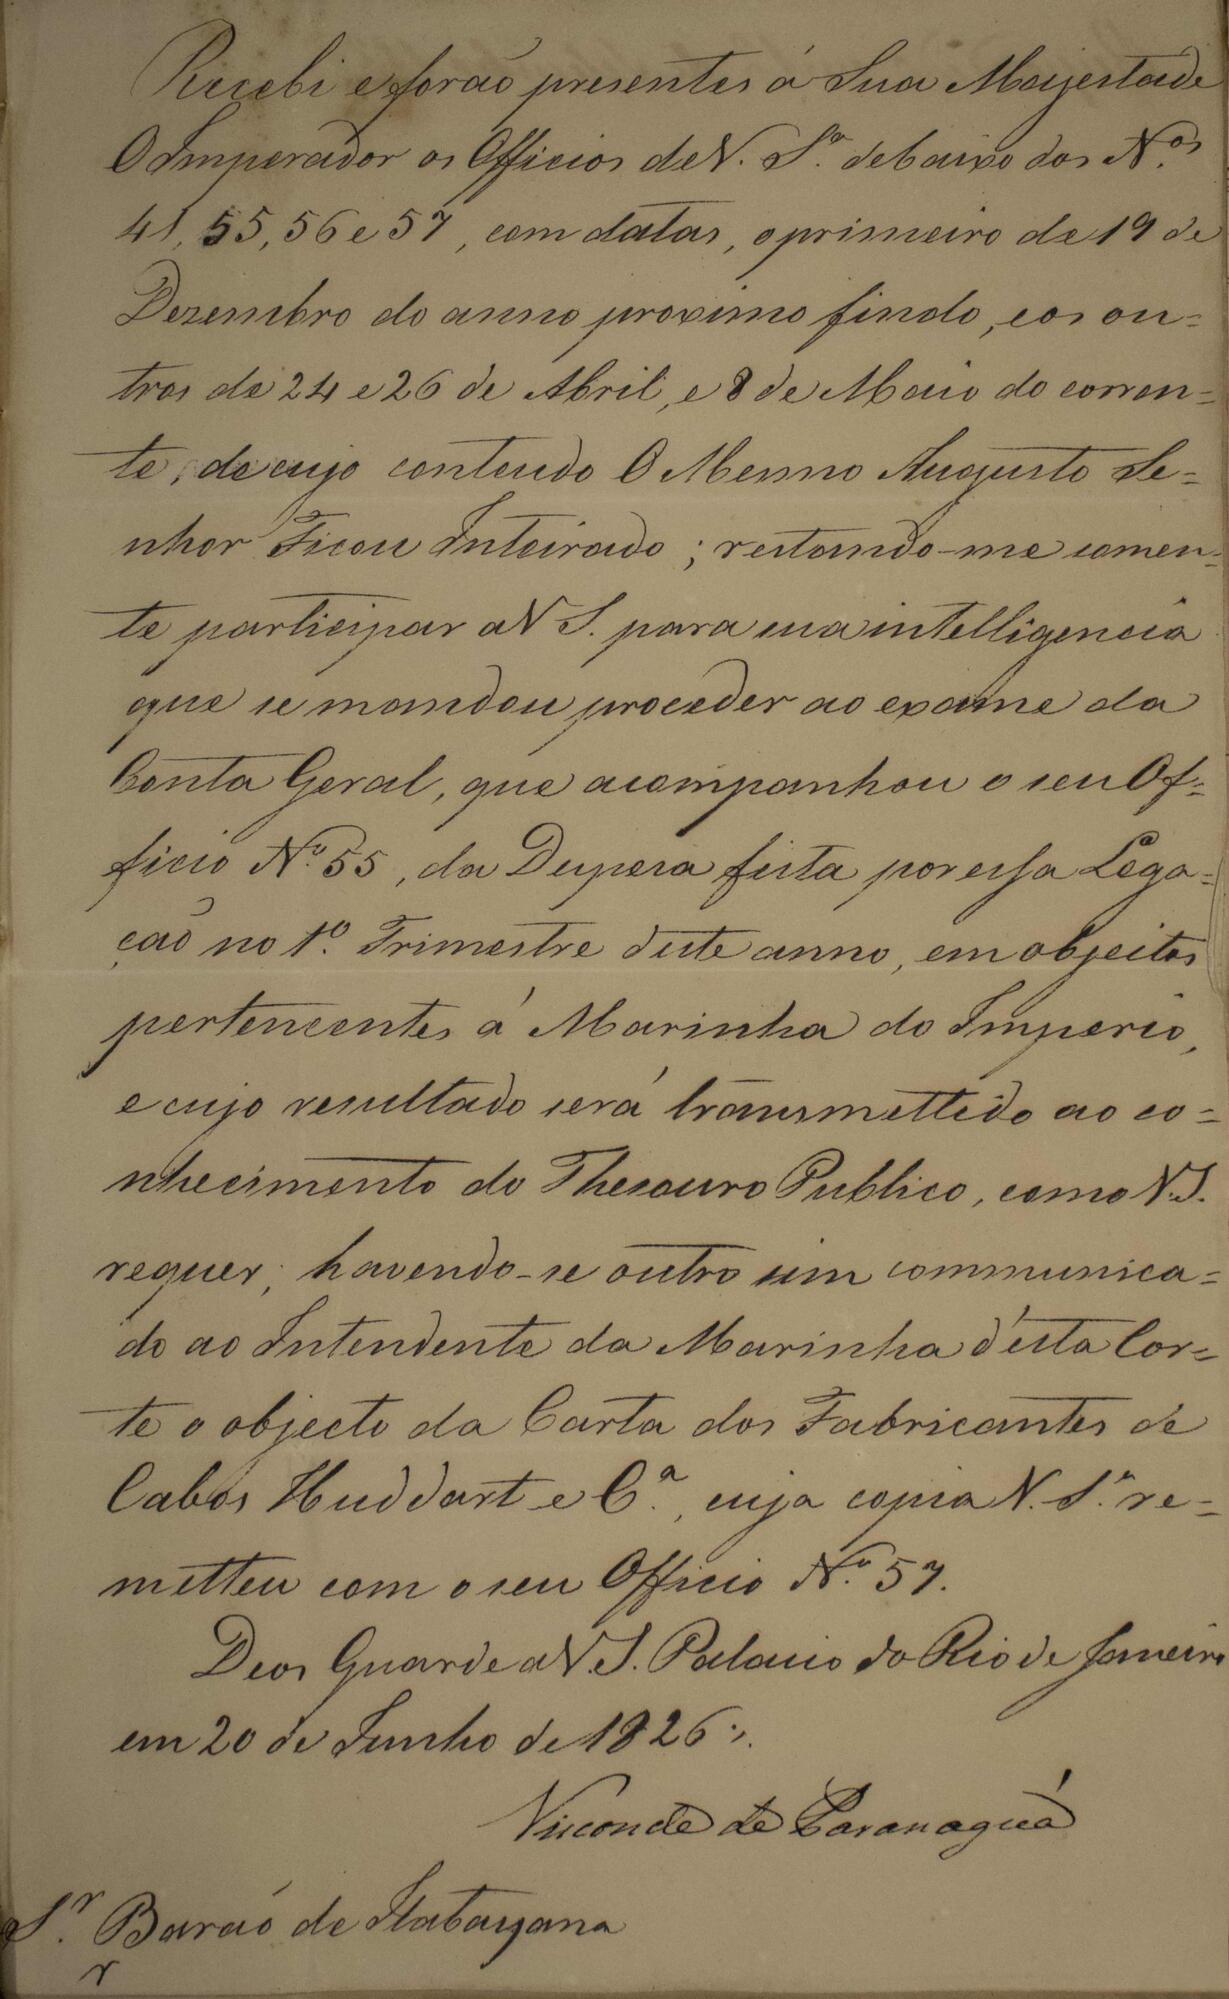 Recebi e forão presentes á Sua Magestade
O Imperador os Officios de V. S.ª debaixo dos N.os
41, 55, 56 e 57, com datas, o primeiro de 19 de
Dezembro do anno proximo findo, e os ou=
tros de 24 e 26 de Abril, e 8 de Maio do corren=
te, de cujo conteudo O Mesmo Augusto Se=
nhor Ficou Inteirado; restando-me somen=
te participar a V S. para sua intelligencia
que se mandou proceder ao exame da
Conta Geral, que acompanhou o seu Of=
ficio N.º 55, da Despesa feita por essa Lega=
ção no 1º. Trimestre deste anno, em objeitos
pertencentes á Marinha do Imperio,
e cujo resultado será transmettido ao co=
nhecimento do Thesouro Publico, como V.S.
requer; havendo-se outro sim communica=
do ao Intendente da Marinha d'esta Cor=
te o objecto da Carta dos Fabricantes de
Cabos Huddart e C.ª, cuja copia V. S.ª re=
metteu com o seu Officio N.º 57.
Deos Guarde a V. S. Palacio do Rio de Janeiro
em 20 de Junho de 1826.
Visconde de Paranaguá
S.r Barão de Itabayana
r